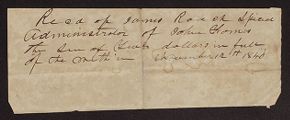 Recd of James
Administrator of John
The Sum of dollars in full
of the within December 12th 1840